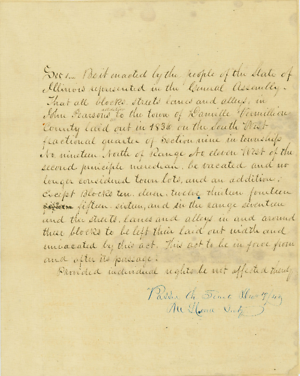 Sec 1. Be it enacted by the people of the State of
Illinois represented in the General Assembly.
That all blocks streets lanes and alleys, in
John Pearsons to the town of Danville Vermillion
County laid out in 1836 on the South West
fractional quarter of Section nine in township
No nineteen North of Range No eleven West of the
second principle meridian be vacated and no
longer considered town lots, and an addition.
Except Blocks ten eleven twelve thirteen fourteen
fifteen sixteen, and six the range seventeen
and the streets, lanes and alleys in and around
these blocks to be left their laid out width and
unvacated by this act. This act to be in force from
and after its passage.
Provided individual rights be not affected thereby
Passed